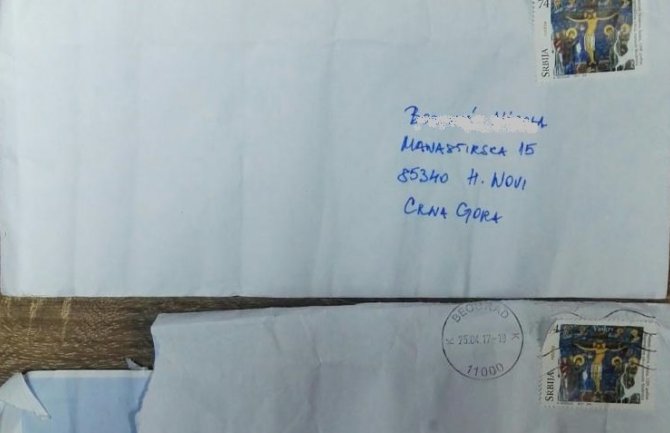 74
SRBIJA
MANASTIRSCA 15
85340 H. NOVI
CRNA GORA
BEOGRAD
K 25.04.17-19 K
11000
SRBIJA